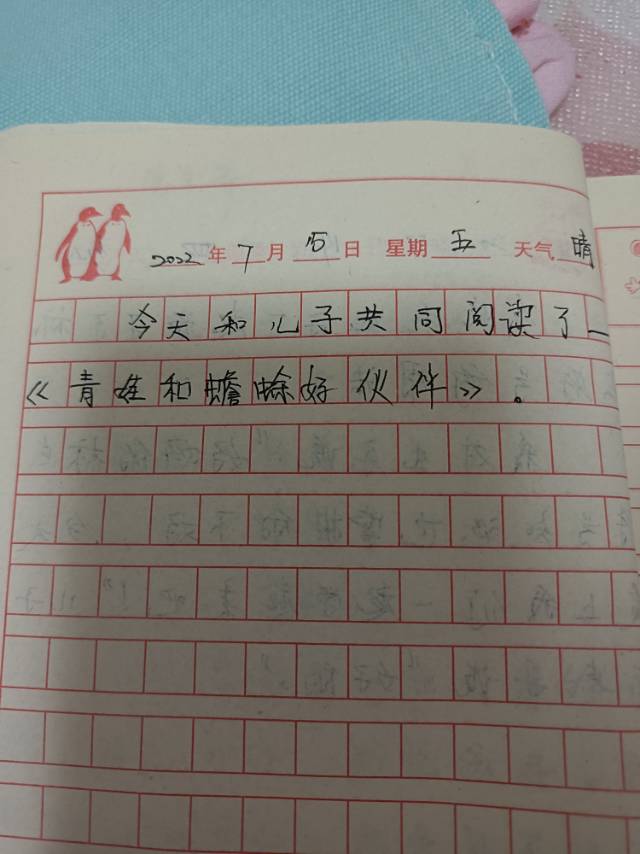 2022年7月15日 星期五 天气晴
今天和儿子共同阅读了一
《青娃和蟾蜍好伙伴》。